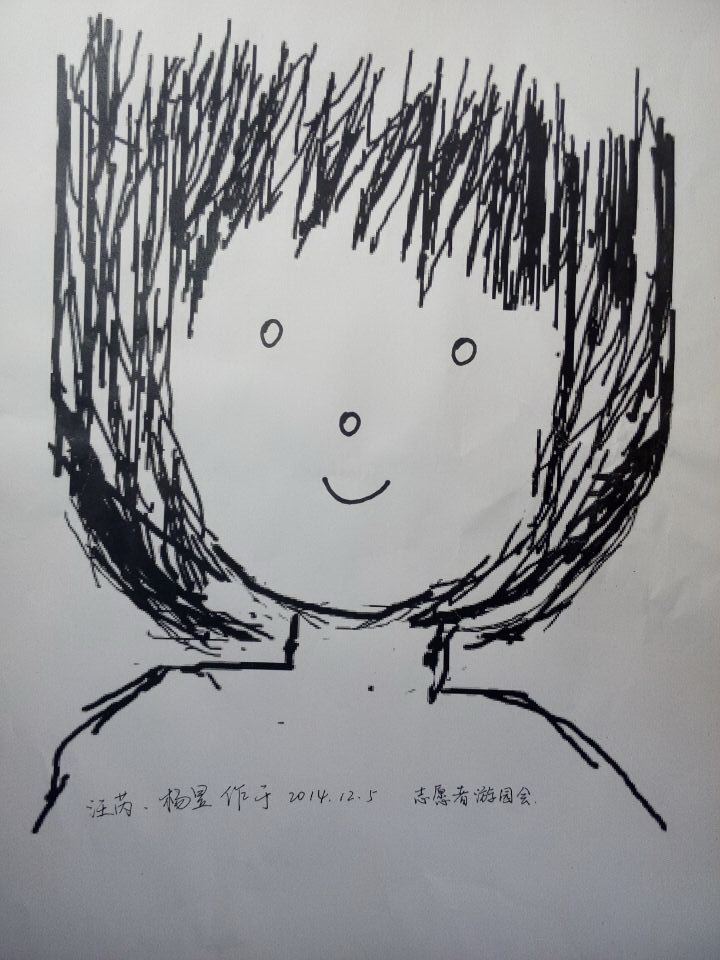 汪芮、杨昱作于 2014.12.5 志愿者游园会.